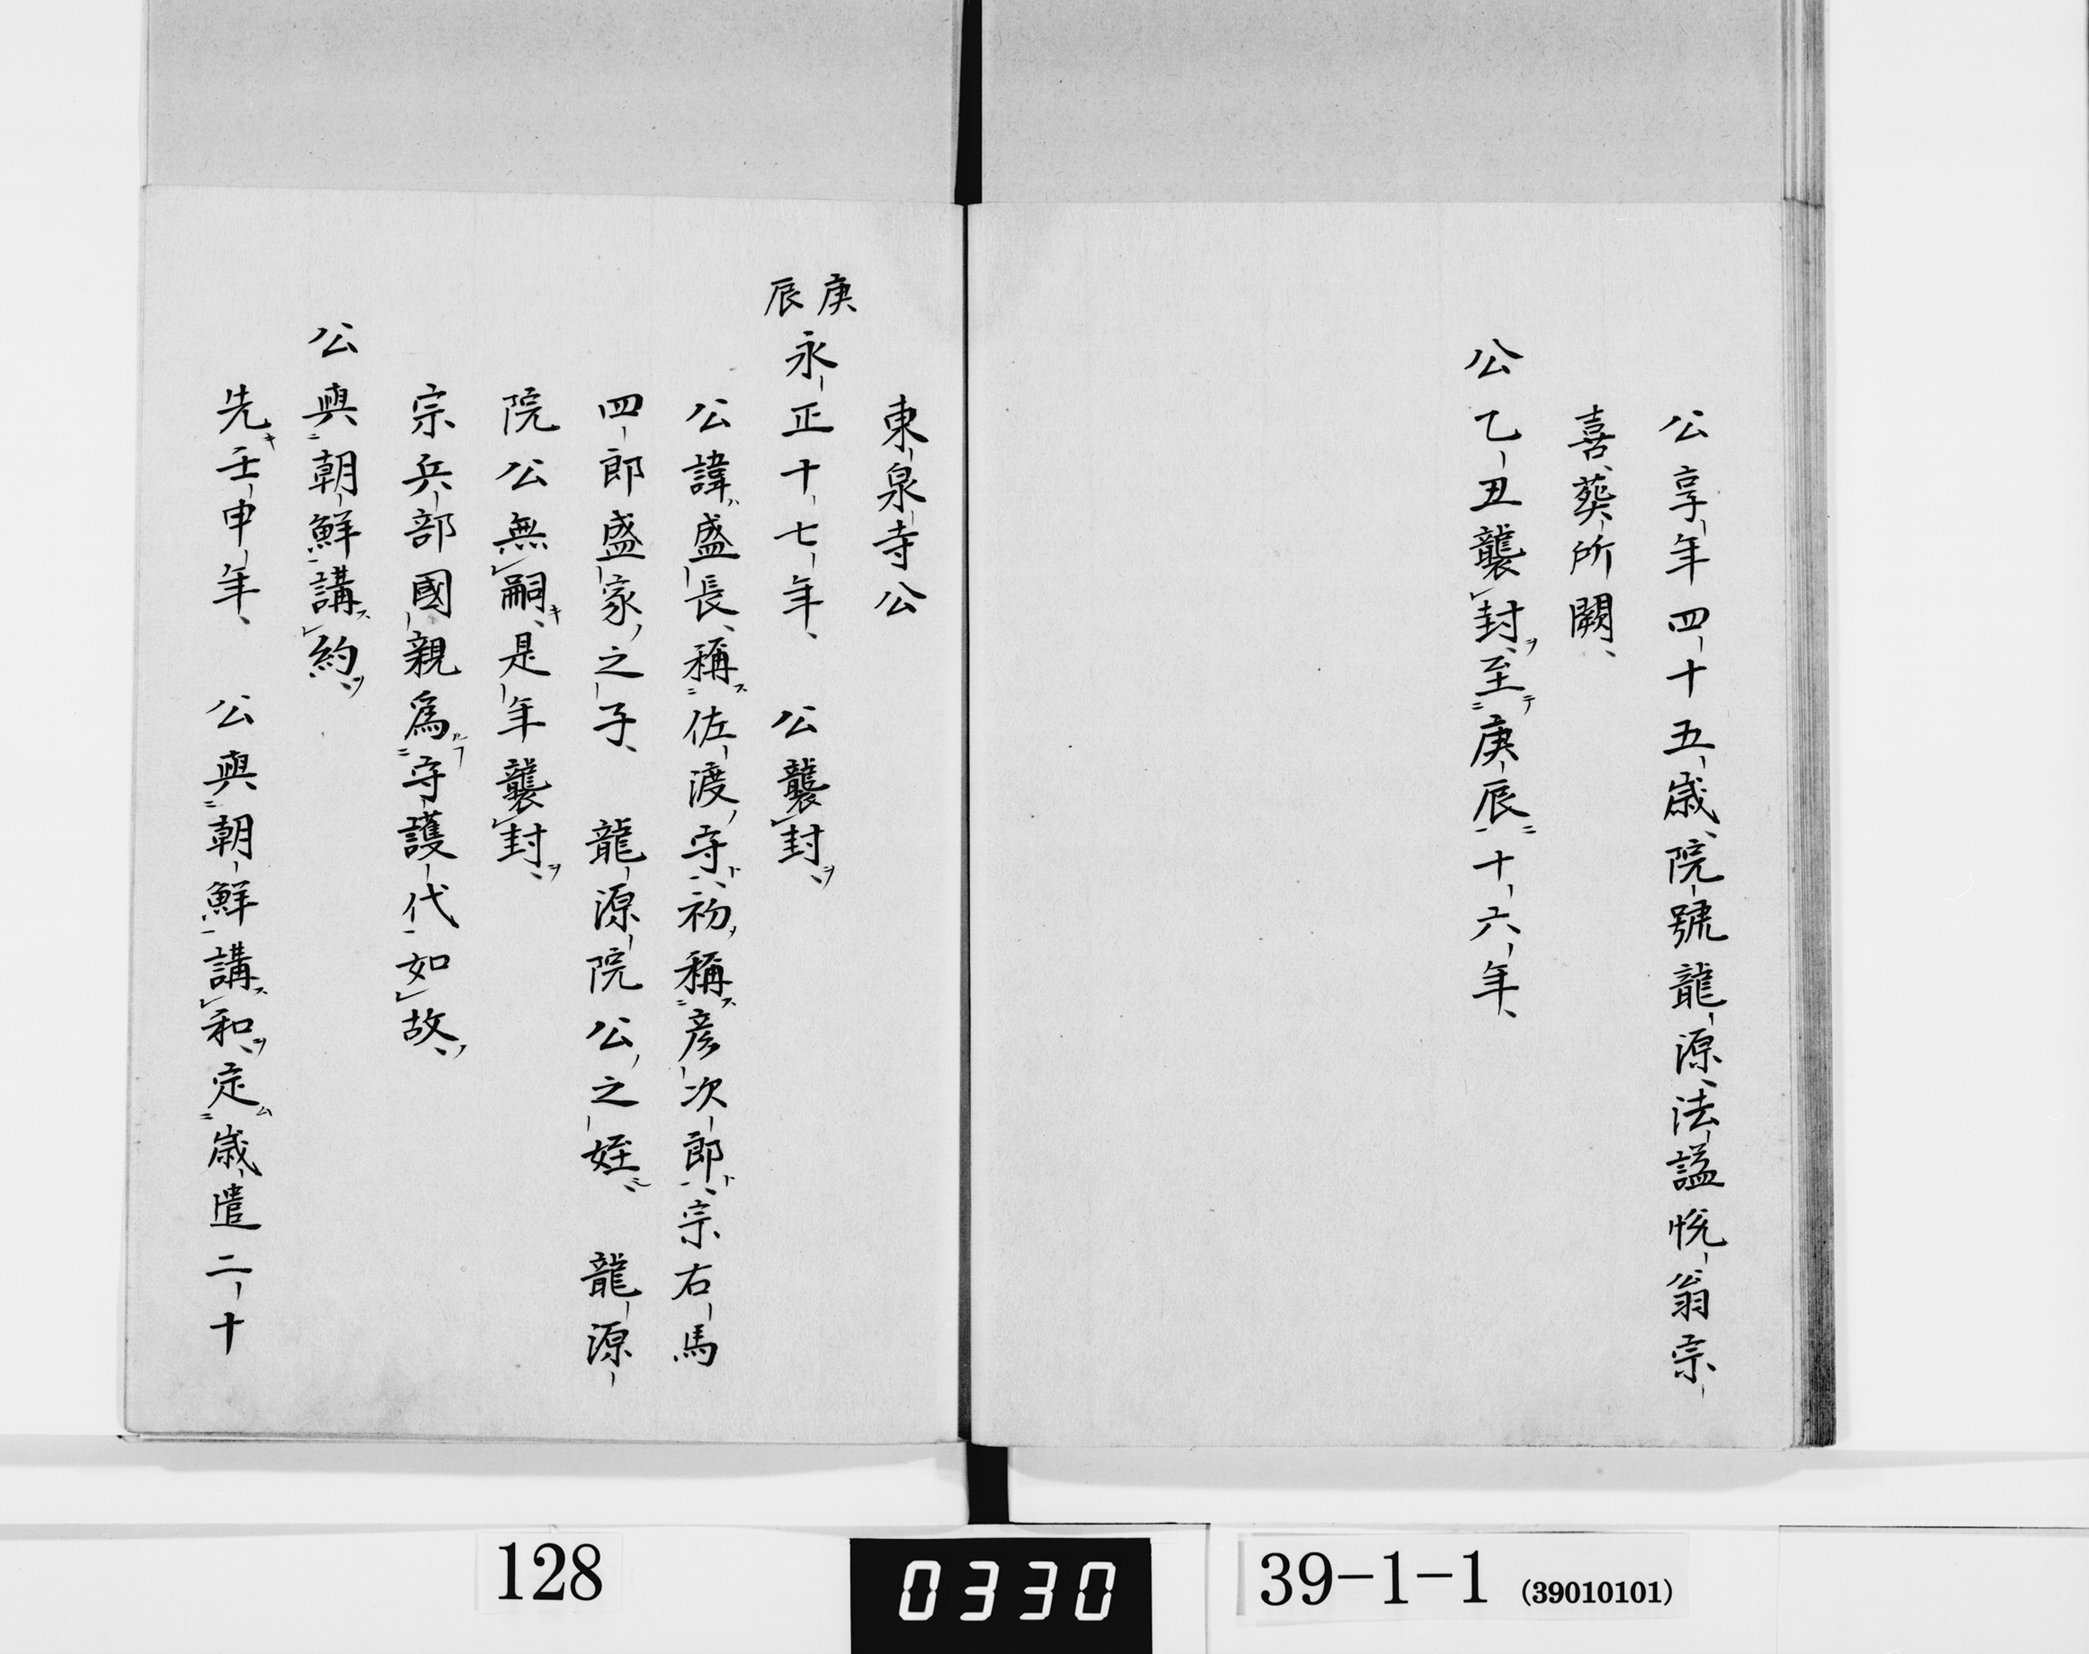 公享年四十五歳、院號龍源、法諡悦翁宗
喜、葬所闕、
公乙丑襲封、至庚辰十六年、
東泉寺公
庚辰永正十七年、　公襲封、
公諱盛長、稱佐渡守、初稱彦次郎、宗右馬
四郎盛家之子、　龍源院公之姪、　龍源
院公無嗣、是年襲封、
宗兵部國親爲守護代如故、
公與朝鮮講約、
先壬申年、　公與朝鮮講和、定歳遣二十
128
0330
39-1-1 (39010101)